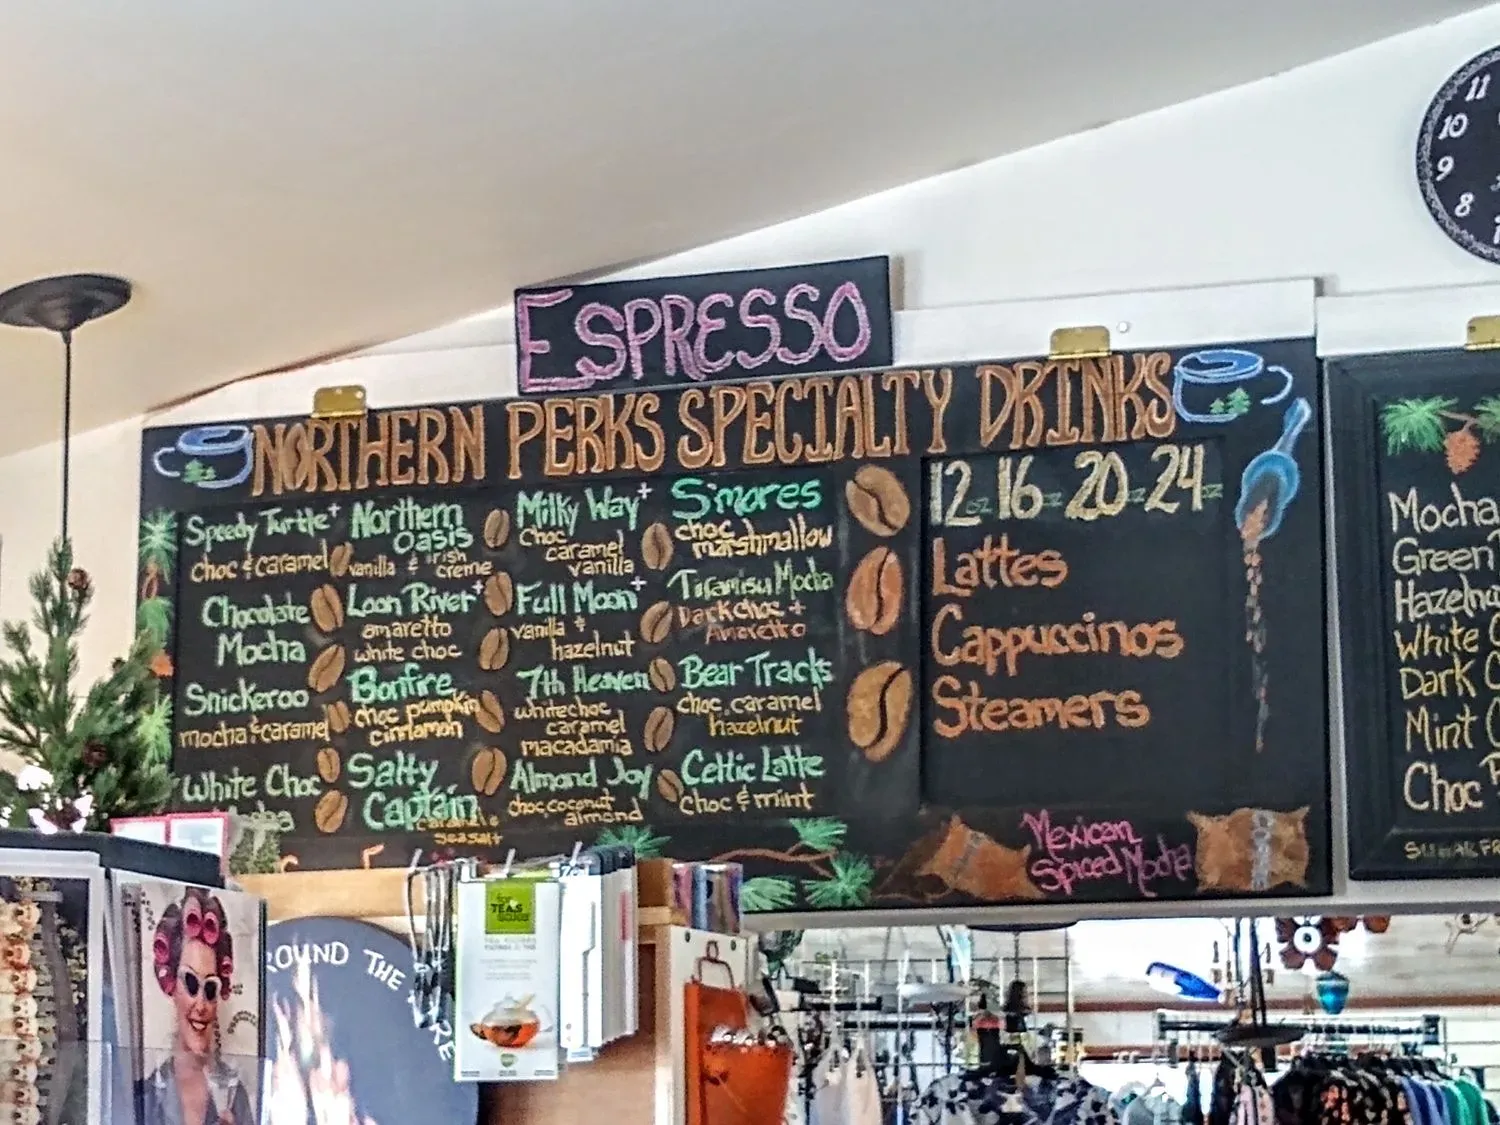 ESPRESSO
NORTHERN PERKS SPECIALTY DRINKS
Speedy Turtle+
choc & caramel
Chocolate
Mocha
Snickeroo
mocha & caramel
White Choc
Northern
Oasis
vanilla & irish
creme
Loon River+
amaretto
white choc
Bonfire
choc pumpkin
cinnamon
Salty
Captain
caramel &
seasalt
Milky Way+
choc
caramel
vanilla
Full Moon+
vanilla +
hazelnut
7th Heaven
white choc
caramel
macadamia
Almond Joy
choc coconut
almond
S'mores
choc
marshmallow
Tiramisu Mocha
Dark choc +
Amaretto
Bear Tracks
choc, caramel
hazelnut
Celtic Latte
choc & mint
12oz 16oz 20oz 24oz
Lattes
Cappuccinos
Steamers
Mexican
Spiced Mocha
Mocha
Green
Hazelnu
White
Dark C
Mint
Choc
11
10
9
8
ROUND THE
for
TEAS
sake